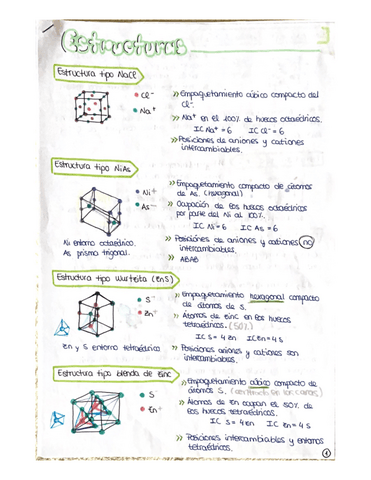 Estructuras
Estructura tipo NaCl
Cl⁻
Na⁺
» Empaquetamiento cúbico compacto del
Cl⁻.
» Na⁺ en el 100% de huecos octaédricos.
IC Na⁺ = 6 IC Cl⁻ = 6
» Posiciones de aniones y cationes
intercambiables.
Estructura tipo NiAs
Ni⁺
As⁻
Ni entorno octaédrico.
As prisma trigonal.
» Empaquetamiento compacto de átomos
de As. (hexagonal)
» Ocupación de los huecos octaédricos
por parte del Ni al 100%.
IC Ni = 6 IC As = 6
» Posiciones de aniones y cationes no
intercambiables.
» ABAB
Estructura tipo wurtzita (ZnS)
S⁻
Zn⁺
Zn y S entorno tetraédrico
» Empaquetamiento hexagonal compacto
de átomos de S.
» Átomos de zinc en los huecos
tetraédricos. (50%)
IC S = 4 IC Zn = 4
» Posiciones aniones y cationes son
intercambiables.
Estructura tipo blenda de zinc
S⁻
Zn⁺
» Empaquetamiento cúbico compacto de
átomos S.
» Átomos de Zn ocupan el 50% de
los huecos tetraédricos.
IC S = 4 IC Zn = 4
» Posiciones intercambiables y entorno
tetraédrico.
1